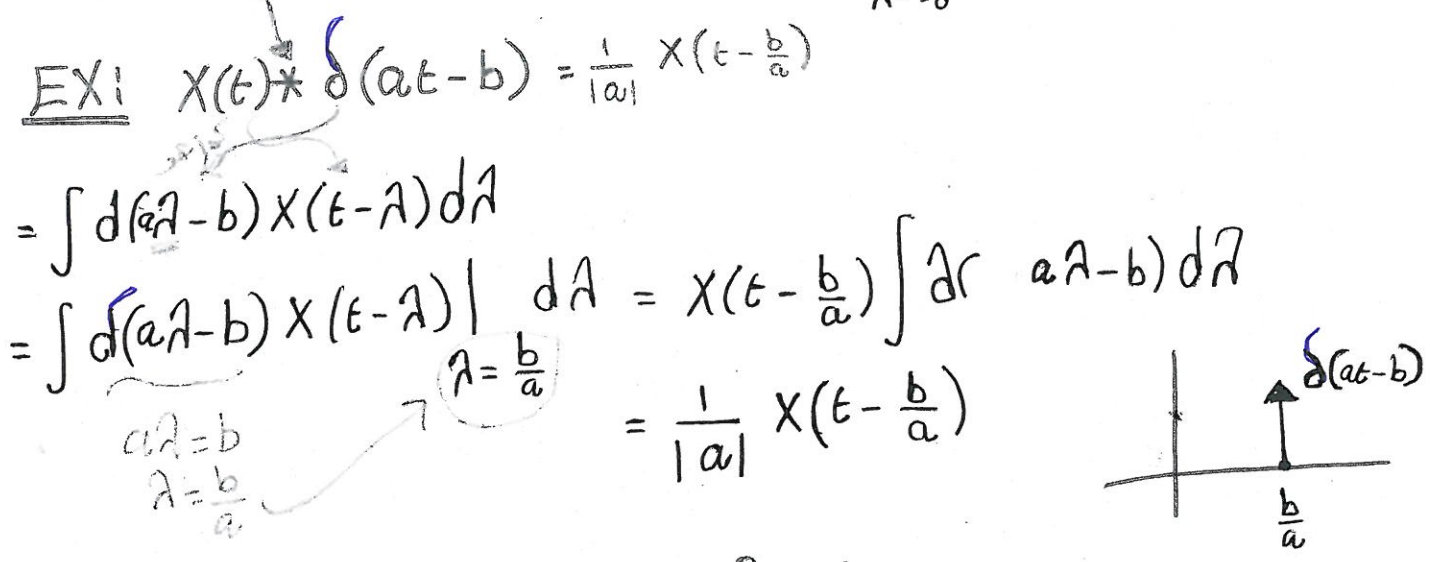 EX: X(t) * δ(at-b) = 1/|a| X(t - b/a)
= ∫ d(aλ-b) X(t-λ) dλ
= ∫ δ(aλ-b) X(t-λ)| λ = b/a dλ = X(t - b/a) ∫ ∂( aλ-b) dλ
aλ = b
λ = b/a
= 1/|a| X(t - b/a)
δ(at-b)
b/a